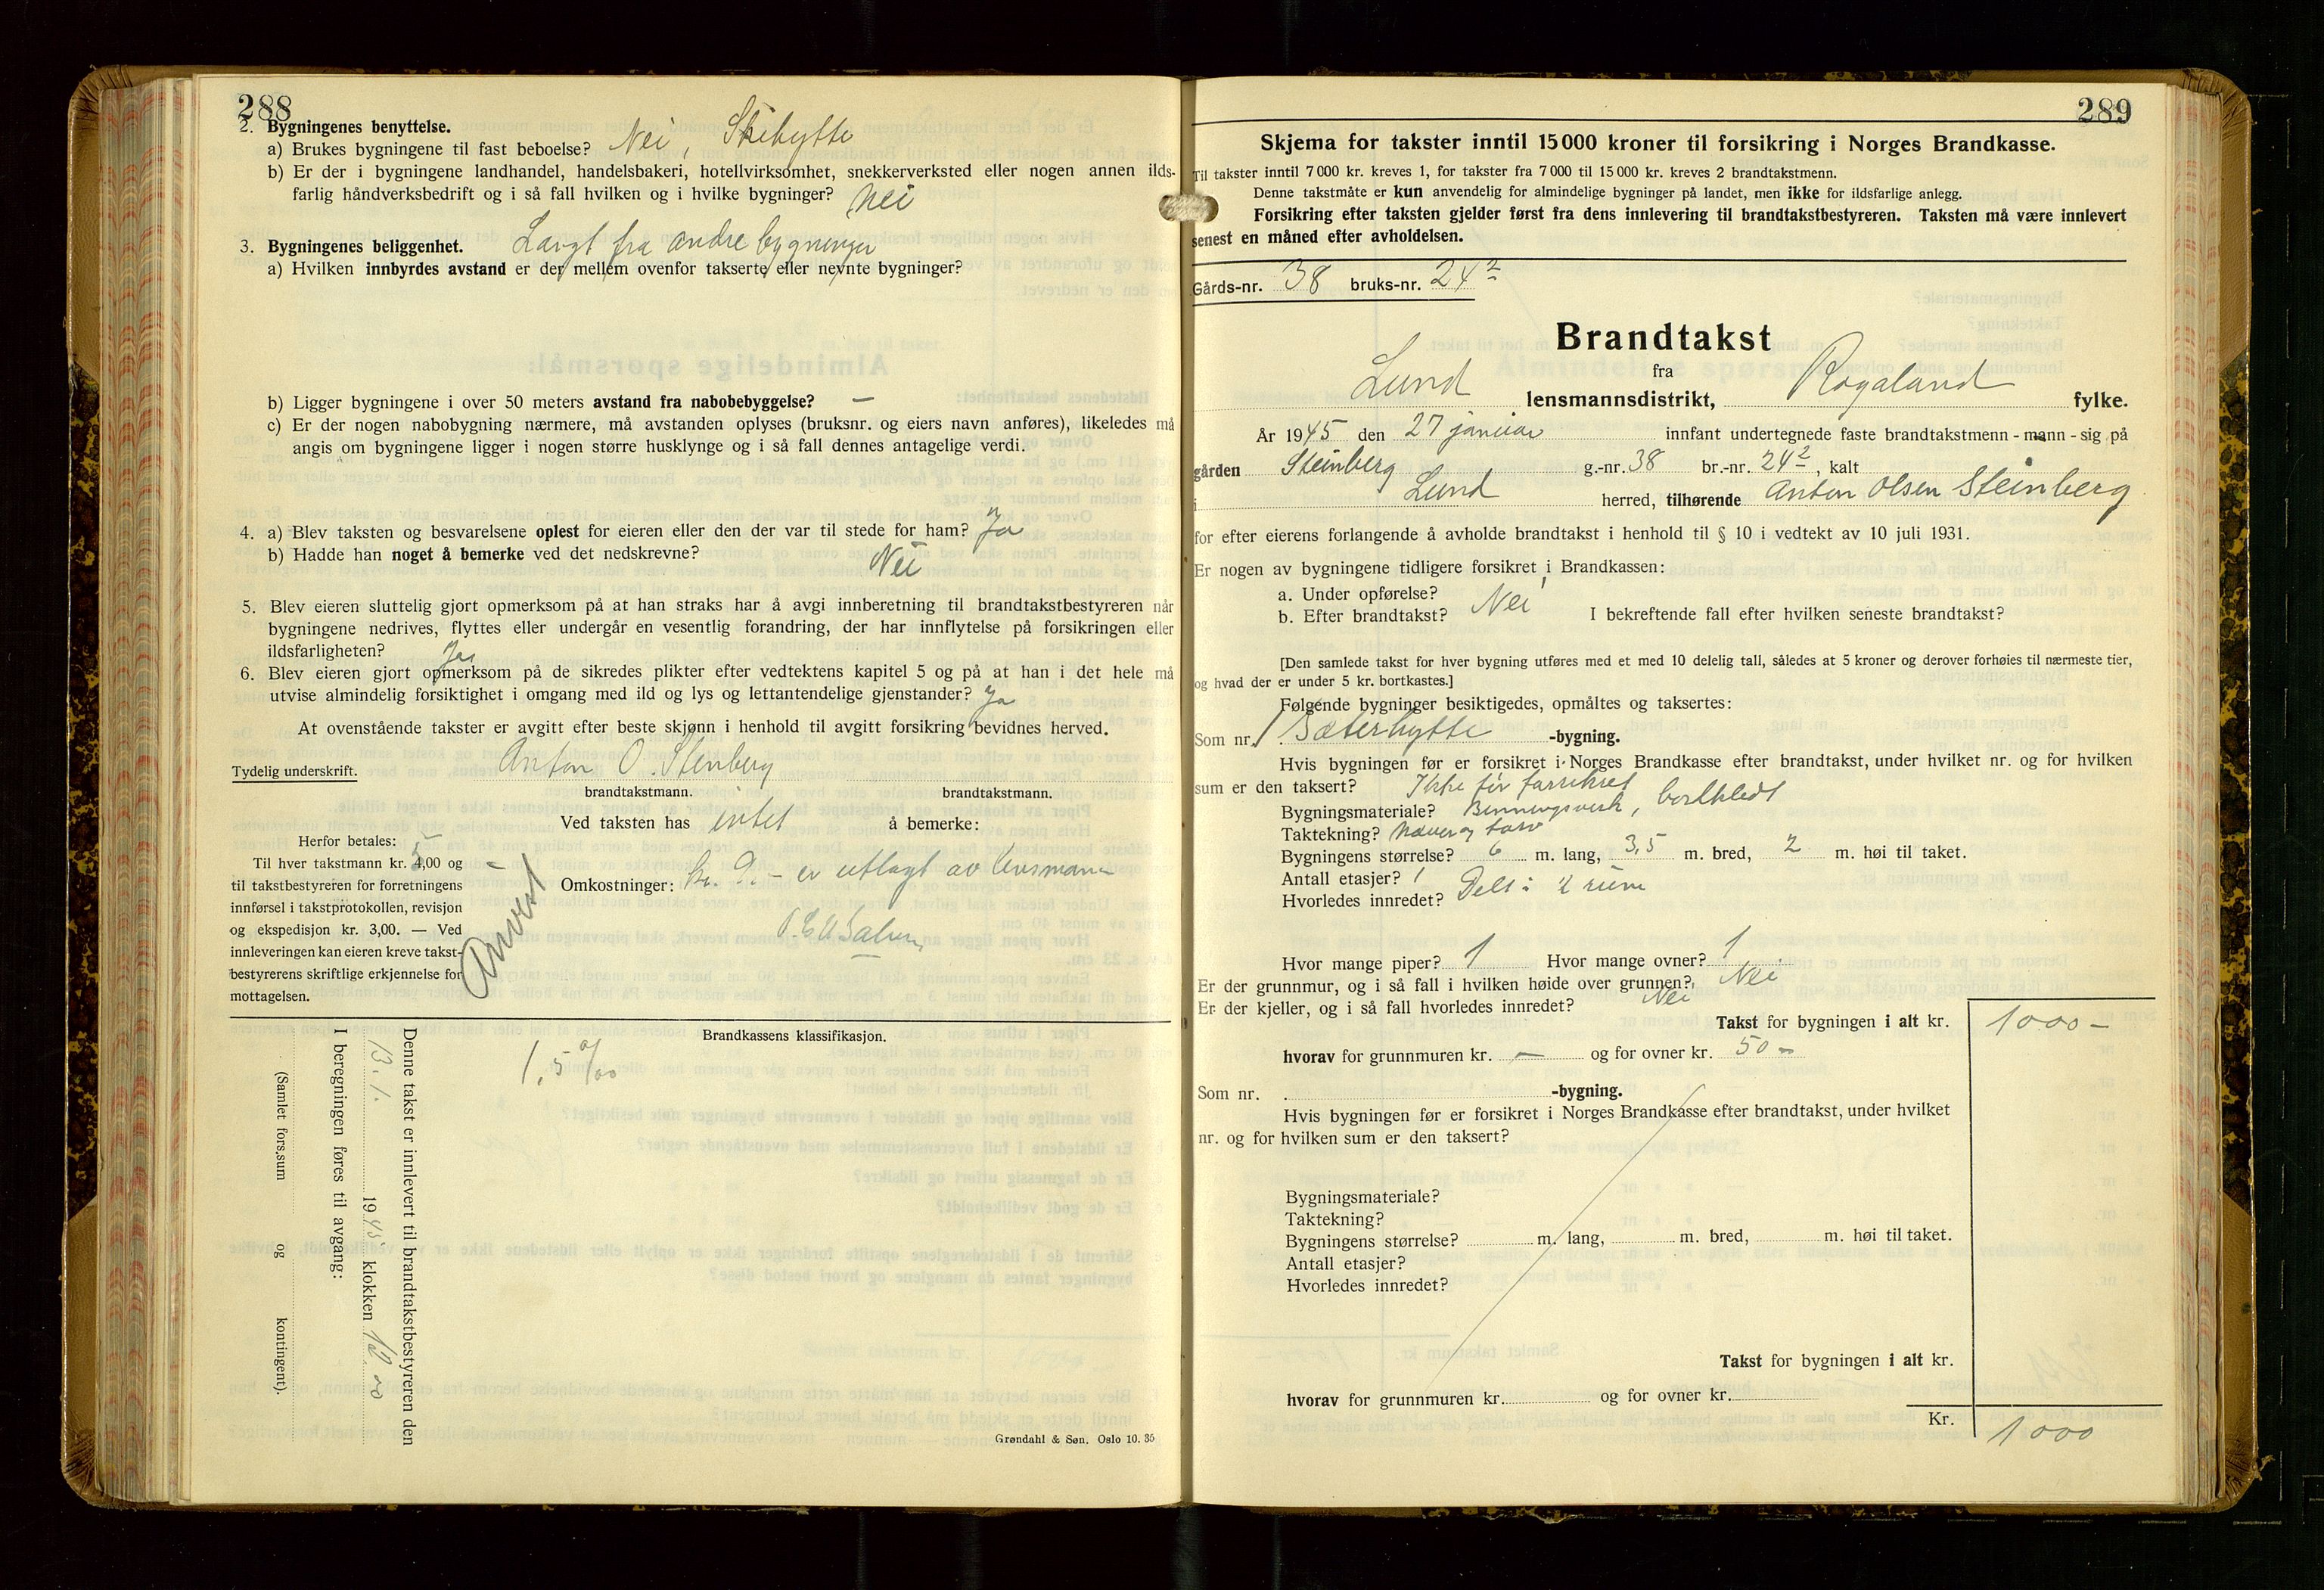 288
2. Bygningenes benyttelse.
a) Brukes bygningene til fast beboelse? Nei, Skihytte
b) Er der i bygningene landhandel, handelsbakeri, hotellvirksomhet, snekkerverksted eller nogen annen ilds-
farlig håndverksbedrift og i så fall hvilken og i hvilke bygninger? Nei
3. Bygningenes beliggenhet. Langt fra andre bygninger
a) Hvilken innbyrdes avstand er der mellem ovenfor takserte eller nevnte bygninger?
b) Ligger bygningene i over 50 meters avstand fra nabobebyggelse? —
c) Er der nogen nabobygning nærmere, må avstanden oplyses (bruksnr. og eiers navn anføres), likeledes må
angis om bygningene ligger i nogen større husklynge og i så fall dennes antagelige verdi.
4. a) Blev taksten og besvarelsene oplest for eieren eller den der var til stede for ham? Ja
b) Hadde han noget å bemerke ved det nedskrevne? Nei
5. Blev eieren sluttelig gjort opmerksom på at han straks har å avgi innberetning til brandtakstbestyreren når
bygningene nedrives, flyttes eller undergår en vesentlig forandring, der har innflytelse på forsikringen eller
ildsfarligheten? Ja
6. Blev eieren gjort opmerksom på de sikredes plikter efter vedtektens kapitel 5 og på at han i det hele må
utvise almindelig forsiktighet i omgang med ild og lys og lettantendelige gjenstander? Ja
At ovenstående takster er avgitt efter beste skjønn i henhold til avgitt forsikring bevidnes herved.
Tydelig underskrift. Anton O. Stenberg
brandtakstmann. brandtakstmann.
Ved taksten has intet å bemerke:
Herfor betales:
Til hver takstmann kr. 4,00 og
til takstbestyreren for forretningens
innførsel i takstprotokollen, revisjon
og ekspedisjon kr. 3,00. — Ved
innleveringen kan eieren kreve takst-
bestyrerens skriftlige erkjennelse for
mottagelsen.
Omkostninger: kr. 9.- er utlagt av lensmann
Anvist
Brandkassens klassifikasjon.
1,5 ‰
Denne takst er innlevert til brandtakstbestyreren den
19 45 klokken 12.00
I beregningen føres til avgang:
(Samlet fors.sum og kontingent).
Grøndahl & Søn. Oslo 10. 35
289
Skjema for takster inntil 15 000 kroner til forsikring i Norges Brandkasse.
Til takster inntil 7 000 kr. kreves 1, for takster fra 7 000 til 15 000 kr. kreves 2 brandtakstmenn.
Denne takstmåte er kun anvendelig for almindelige bygninger på landet, men ikke for ildsfarlige anlegg.
Forsikring efter taksten gjelder først fra dens innlevering til brandtakstbestyreren. Taksten må være innlevert
senest en måned efter avholdelsen.
Gårds-nr. 38 bruks-nr. 24²
Brandtakst
fra
Lund lensmannsdistrikt, Rogaland fylke.
År 1945 den 27 januar innfant undertegnede faste brandtakstmenn - mann - sig på
gården Steinberg g.-nr. 38 br.-nr. 24², kalt
i Lund herred, tilhørende Anton Olsen Steinberg
for efter eierens forlangende å avholde brandtakst i henhold til § 10 i vedtekt av 10 juli 1931.
Er nogen av bygningene tidligere forsikret i Brandkassen:
a. Under opførelse?
b. Efter brandtakst? Nei I bekreftende fall efter hvilken seneste brandtakst?
[Den samlede takst for hver bygning utføres med et med 10 delelig tall, således at 5 kroner og derover forhøies til nærmeste tier,
og hvad der er under 5 kr. bortkastes.]
Følgende bygninger besiktigedes, opmåltes og taksertes:
Som nr. 1 Sæterhytte -bygning.
Hvis bygningen før er forsikret i Norges Brandkasse efter brandtakst, under hvilket nr. og for hvilken
sum er den taksert? Ikke før forsikret
Bygningsmateriale? Binningsverk, bordkledt
Taktekning? Never og torv
Bygningens størrelse? 6 m. lang, 3,5 m. bred, 2 m. høi til taket.
Antall etasjer? 1
Hvorledes innredet? Delt i 2 rum
Hvor mange piper? 1 Hvor mange ovner? 1
Er der grunnmur, og i så fall i hvilken høide over grunnen? Nei
Er der kjeller, og i så fall hvorledes innredet? Nei
Takst for bygningen i alt kr. 1000 –
hvorav for grunnmuren kr. — og for ovner kr. 50 –
Som nr. -bygning.
Hvis bygningen før er forsikret i Norges Brandkasse efter brandtakst, under hvilket
nr. og for hvilken sum er den taksert?
Bygningsmateriale?
Taktekning?
Bygningens størrelse? m. lang, m. bred, m. høi til taket.
Antall etasjer?
Hvorledes innredet?
Takst for bygningen i alt kr.
hvorav for grunnmuren kr. og for ovner kr.
Kr. 1000